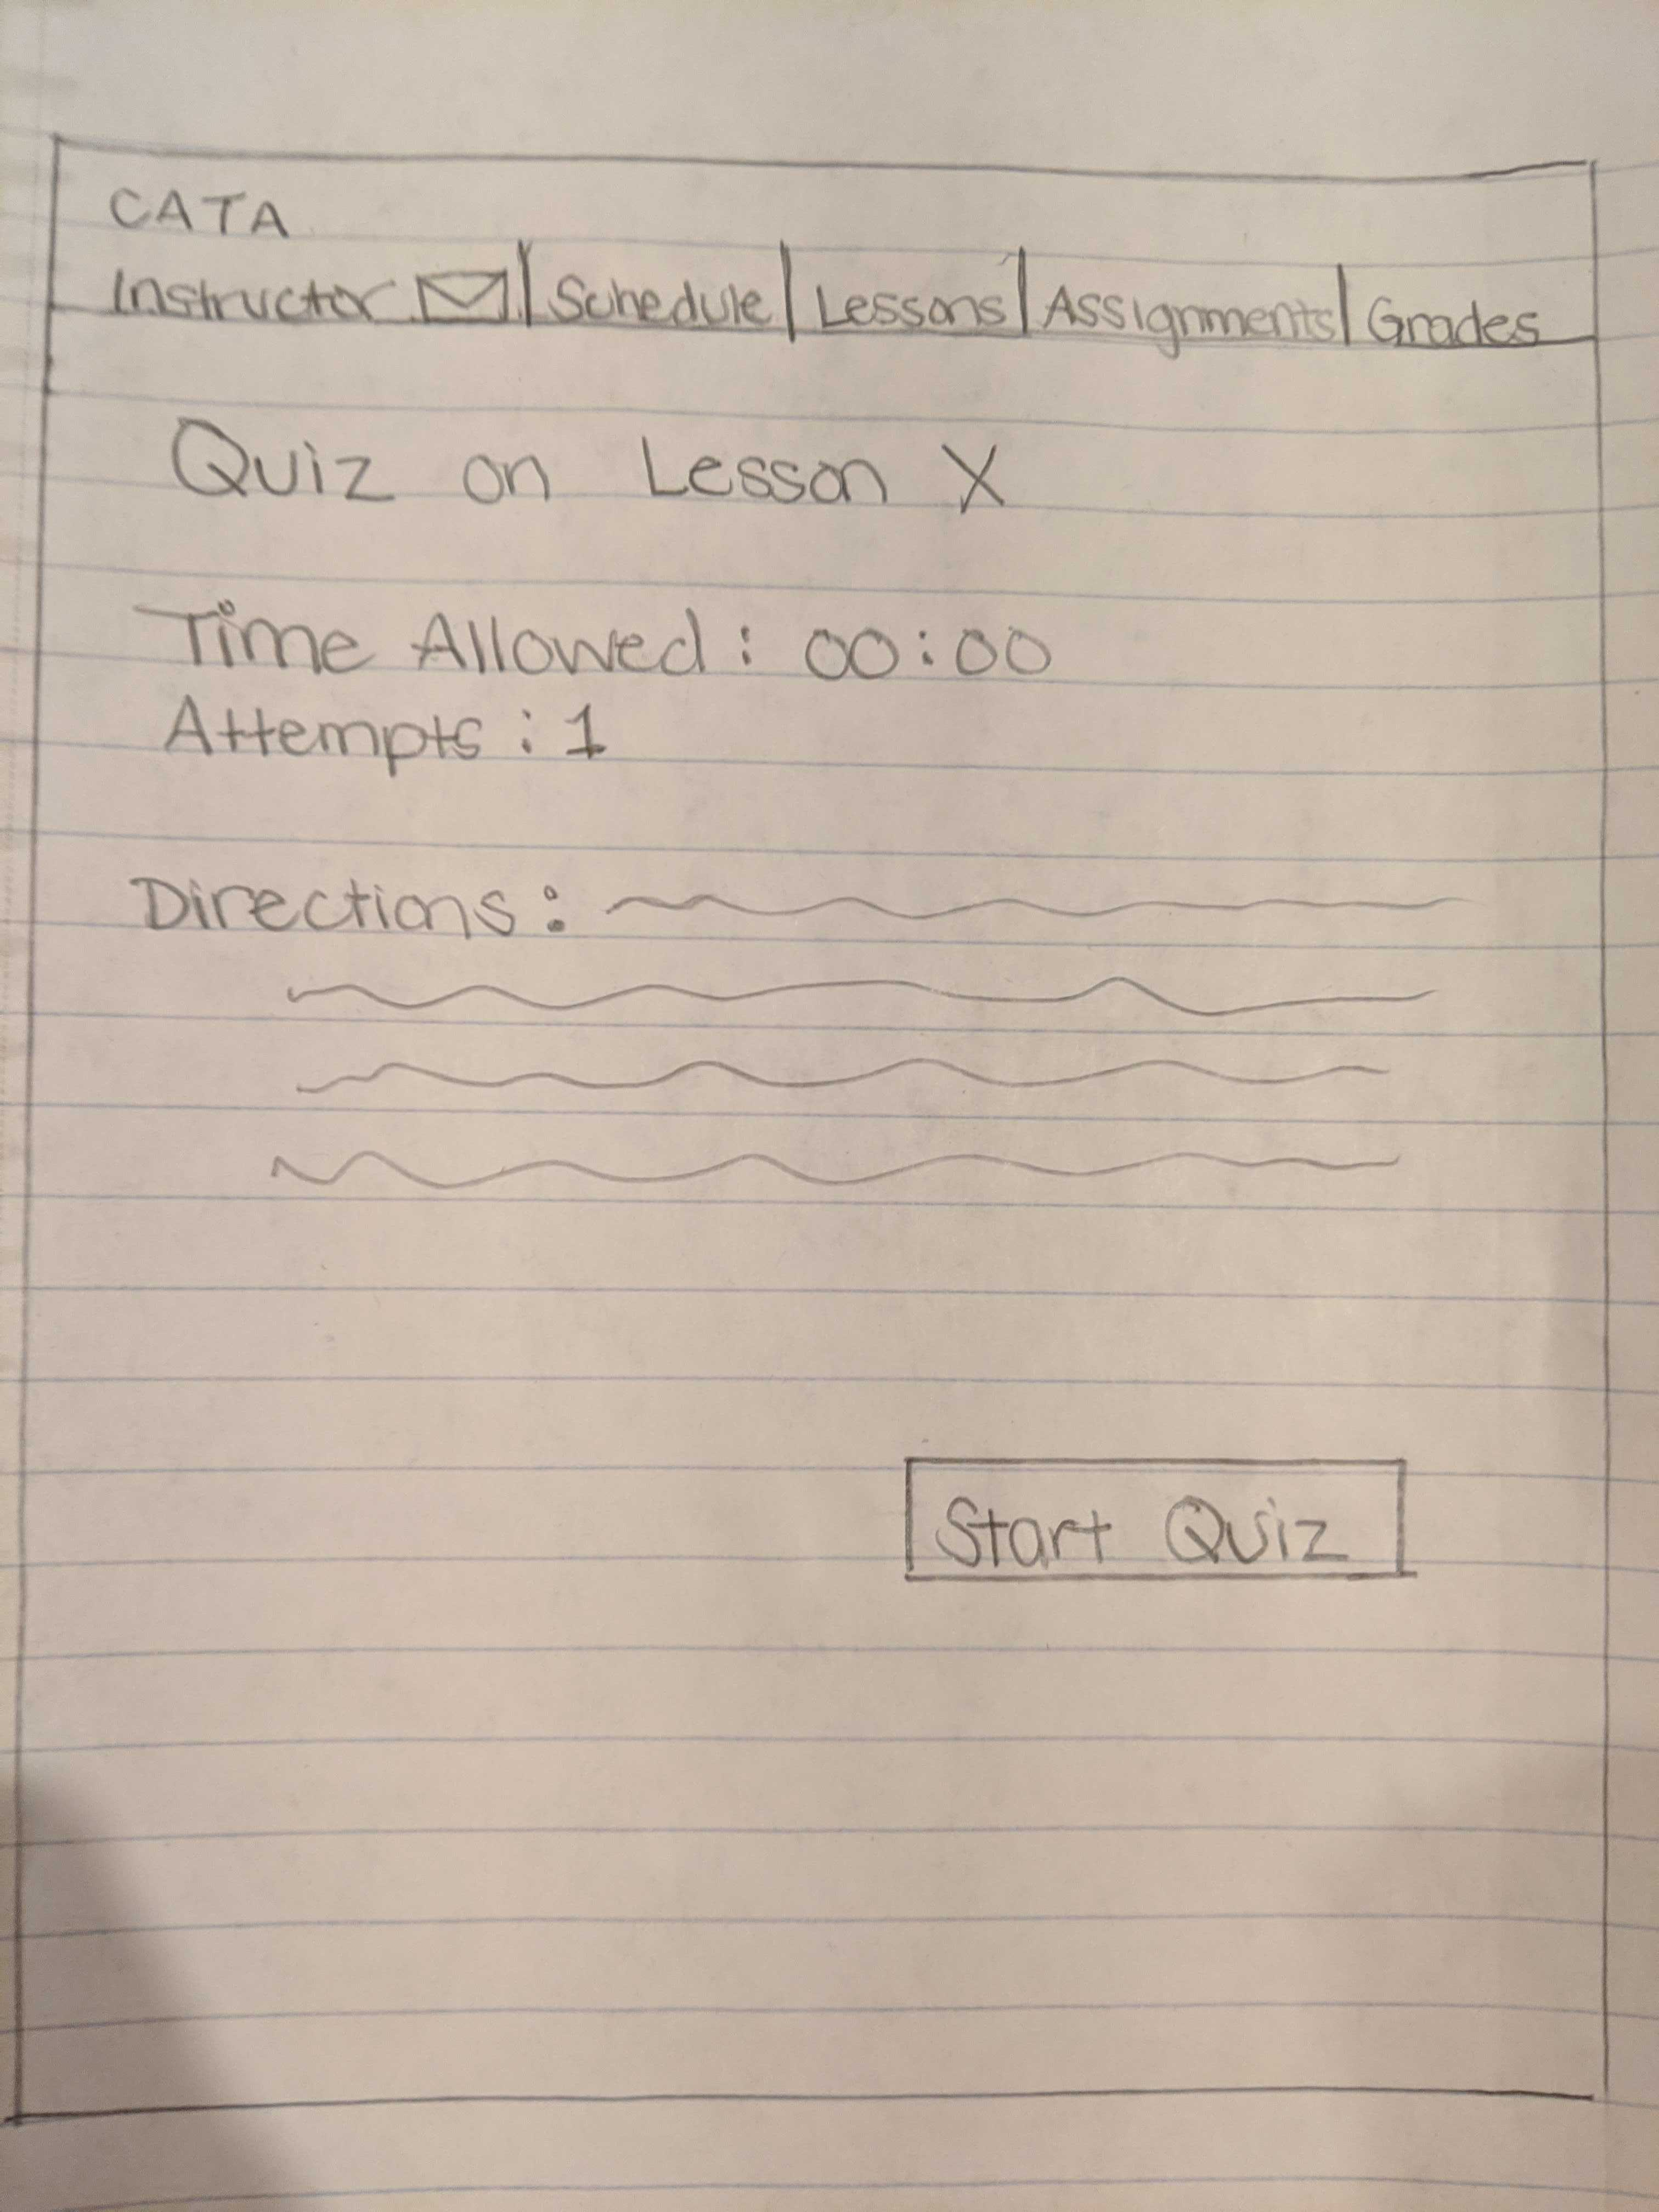 CATA
Instructor | Schedule | Lessons | Assignments | Grades
Quiz on Lesson X
Time Allowed : 00:00
Attempts : 1
Directions :
Start Quiz